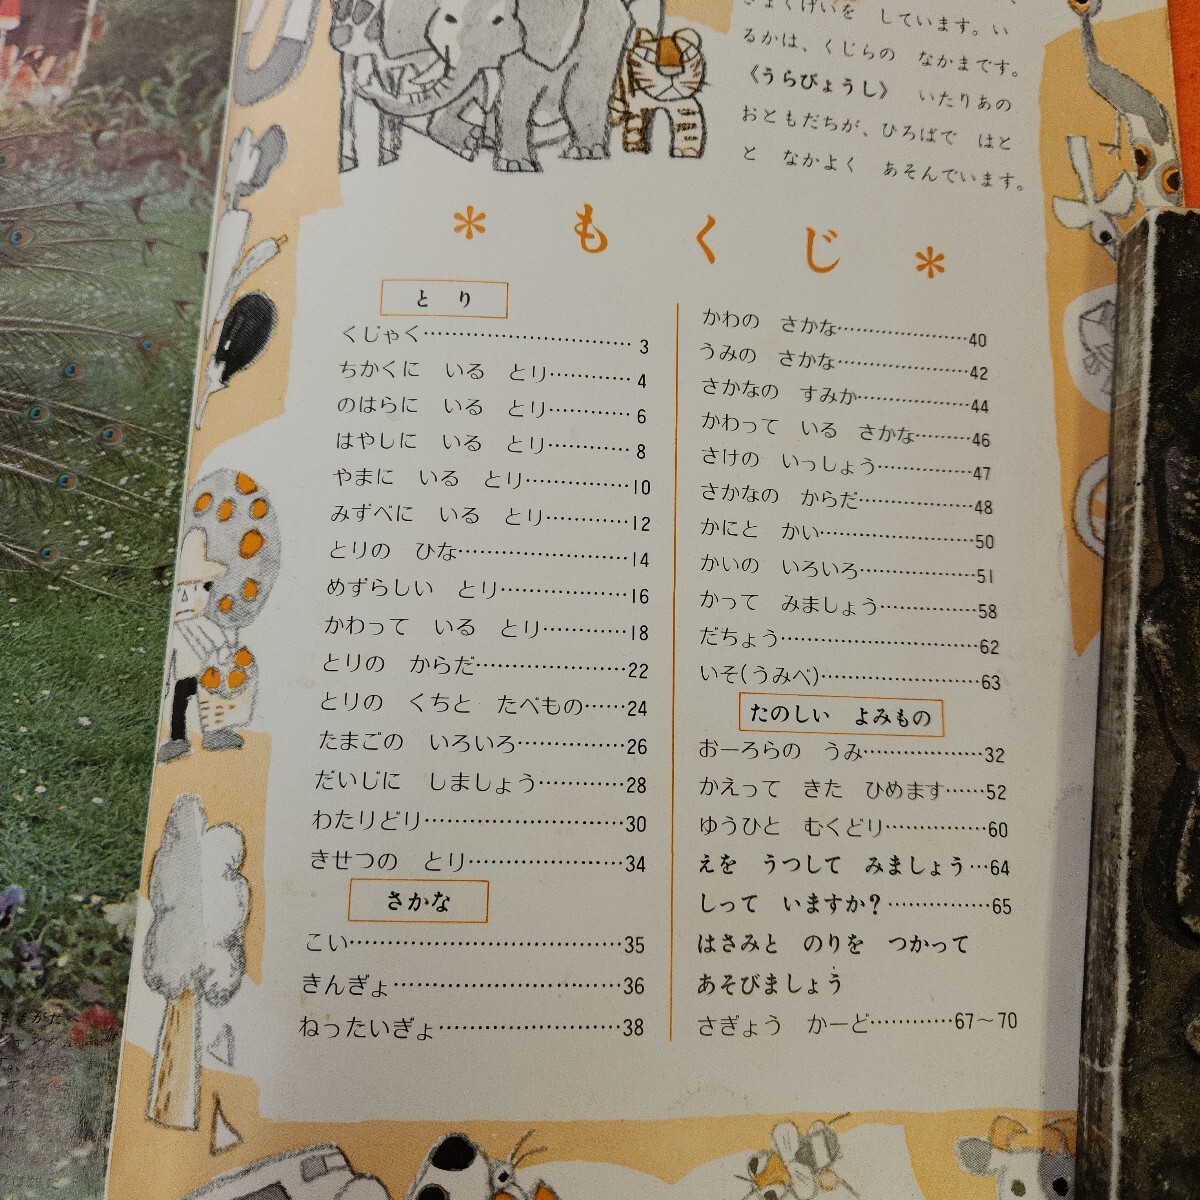 きょくげいを しています。い
るかは、くじらの なかまです。
《うらびょうし》 いたりあの
おともだちが、ひろばで はと
と なかよく あそんでいます。
* もくじ *
とり
くじゃく…………………………3
ちかくに いる とり…………4
のはらに いる とり…………6
はやしに いる とり…………8
やまに いる とり……………10
みずべに いる とり…………12
とりの ひな……………………14
めずらしい とり………………16
かわって いる とり…………18
とりの からだ…………………22
とりの くちと たべもの……24
たまごの いろいろ……………26
だいじに しましょう…………28
わたりどり………………………30
きせつの とり…………………34
さかな
こい………………………………35
きんぎょ…………………………36
ねったいぎょ……………………38
かわの さかな…………………40
うみの さかな…………………42
さかなの すみか………………44
かわって いる さかな………46
さけの いっしょう……………47
さかなの からだ………………48
かにと かい……………………50
かいの いろいろ………………51
かって みましょう……………58
だちょう…………………………62
いそ(うみべ)……………………63
たのしい よみもの
おーろらの うみ………………32
かえって きた ひめます……52
ゆうひと むくどり……………60
えを うつして みましょう…64
しって いますか?……………65
はさみと のりを つかって
あそびましょう
さぎょう かーど…………67〜70